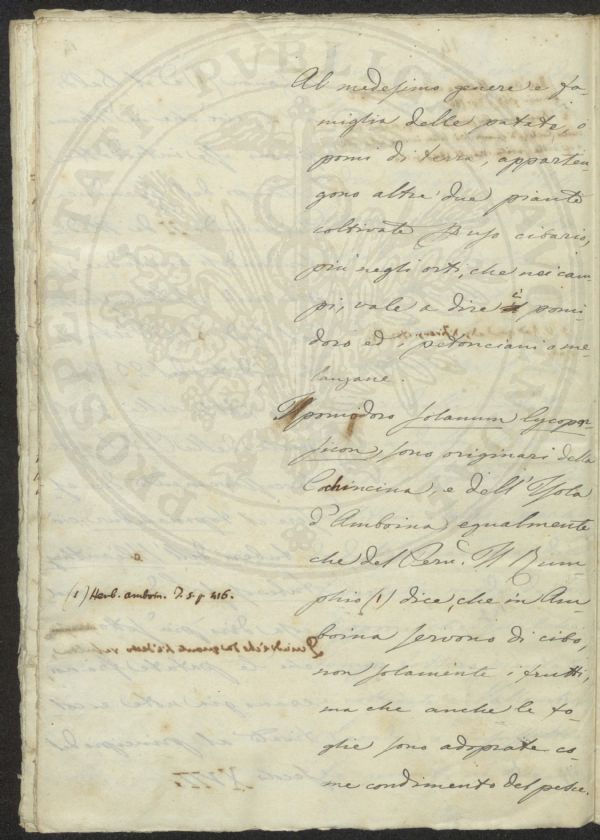 Al medesimo genere e fa-
miglia delle patate o
pomi di terra, apparten-
gono altre due piante
coltivate ad uso cibario,
più negli orti, che nei cam-
pi, vale a dire i pomi-
doro ed i petonciani o me-
lanzane.
Il pomodoro solanum lycoper-
sicon, sono originari della
Cochincina, e dell'Isola
d'Amboina egualmente
che del Perù. Il Rum-
phio (1) dice, che in Am-
boina servono di cibo,
non solamente i frutti,
ma che anche le fo-
glie sono adoprate co-
me condimento del pesce.
(1) Herb. amboin. T. 5. p. 416.
PROSPERITATI PVBLICAE